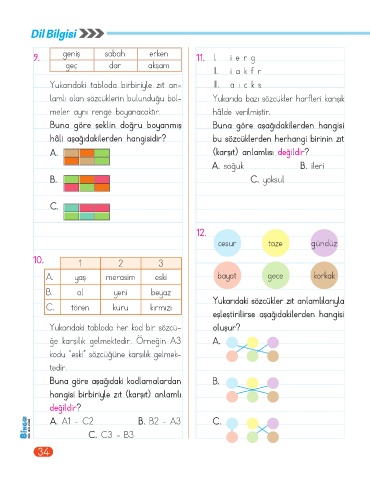 Dil Bilgisi
9.
geniş sabah erken
geç dar akşam
Yukarıdaki tabloda birbiriyle zıt an-
lamlı olan sözcüklerin bulunduğu böl-
meler aynı renge boyanacaktır.
Buna göre şeklin doğru boyanmış
hâli aşağıdakilerden hangisidir?
A.
B.
C.
10.
1 2 3
A. yaş merasim eski
B. al yeni beyaz
C. tören kuru kırmızı
Yukarıdaki tabloda her kod bir sözcü-
ğe karşılık gelmektedir. Örneğin A3
kodu "eski" sözcüğüne karşılık gelmek-
tedir.
Buna göre aşağıdaki kodlamalardan
hangisi birbiriyle zıt (karşıt) anlamlı
değildir?
A. A1 - C2 B. B2 - A3
C. C3 - B3
11. I. i e r g
II. ı a k f r
III. a ı c k s
Yukarıda bazı sözcükler harfleri karışık
hâlde verilmiştir.
Buna göre aşağıdakilerden hangisi
bu sözcüklerden herhangi birinin zıt
(karşıt) anlamlısı değildir?
A. soğuk B. ileri
C. yoksul
12.
cesur taze gündüz
bayat gece korkak
Yukarıdaki sözcükler zıt anlamlılarıyla
eşleştirilirse aşağıdakilerden hangisi
oluşur?
A.
B.
C.
34